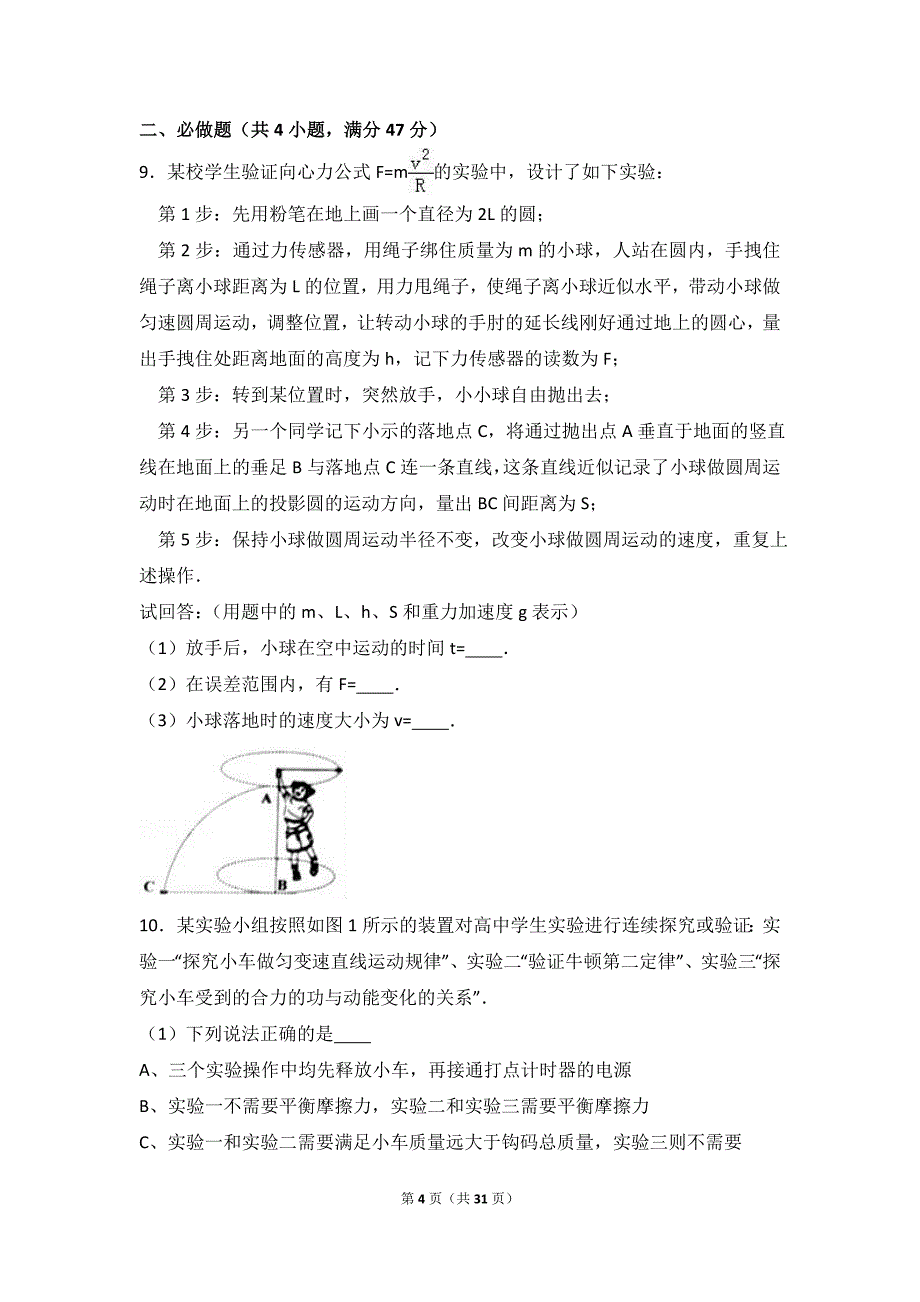 二、必做题（共 4 小题，满分 47 分）
9．某校学生验证向心力公式 F=m\frac{v^2}{R}的实验中，设计了如下实验：
第 1 步：先用粉笔在地上画一个直径为 2L 的圆；
第 2 步：通过力传感器，用绳子绑住质量为 m 的小球，人站在圆内，手拽住
绳子离小球距离为 L 的位置，用力甩绳子，使绳子离小球近似水平，带动小球做
匀速圆周运动，调整位置，让转动小球的手肘的延长线刚好通过地上的圆心，量
出手拽住处距离地面的高度为 h，记下力传感器的读数为 F；
第 3 步：转到某位置时，突然放手，小小球自由抛出去；
第 4 步：另一个同学记下小示的落地点 C，将通过抛出点 A 垂直于地面的竖直
线在地面上的垂足 B 与落地点 C 连一条直线，这条直线近似记录了小球做圆周运
动时在地面上的投影圆的运动方向，量出 BC 间距离为 S；
第 5 步：保持小球做圆周运动半径不变，改变小球做圆周运动的速度，重复上
述操作．
试回答：（用题中的 m、L、h、S 和重力加速度 g 表示）
（1）放手后，小球在空中运动的时间 t=____．
（2）在误差范围内，有 F=____．
（3）小球落地时的速度大小为 v=____．
A
C
B
10．某实验小组按照如图 1 所示的装置对高中学生实验进行连续探究或验证：实
验一“探究小车做匀变速直线运动规律”、实验二“验证牛顿第二定律”、实验三“探
究小车受到的合力的功与动能变化的关系”．
（1）下列说法正确的是____
A、三个实验操作中均先释放小车，再接通打点计时器的电源
B、实验一不需要平衡摩擦力，实验二和实验三需要平衡摩擦力
C、实验一和实验二需要满足小车质量远大于钩码总质量，实验三则不需要
第 4 页（共 31 页）